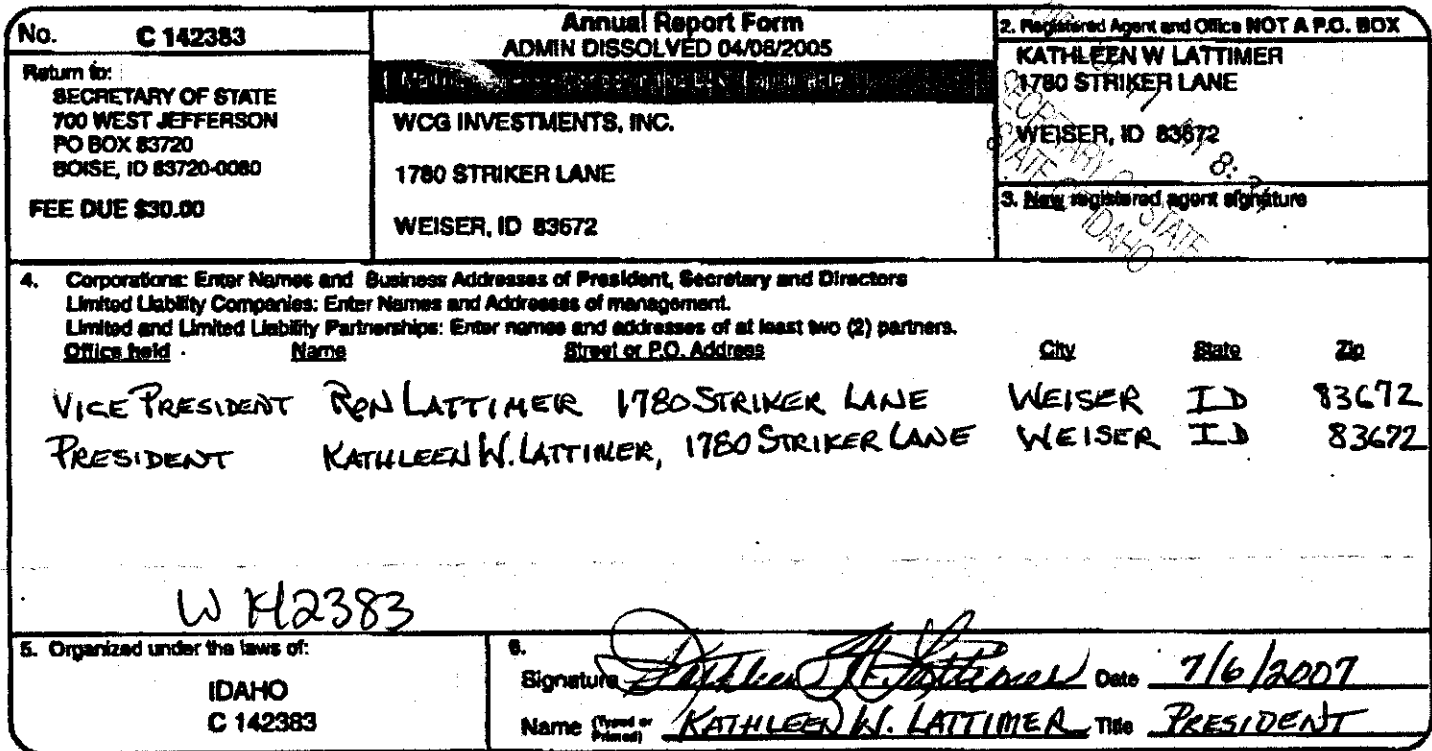 No. C 142383
Return to:
SECRETARY OF STATE
700 WEST JEFFERSON
PO BOX 83720
BOISE, ID 83720-0080
FEE DUE $30.00
Annual Report Form
ADMIN DISSOLVED 04/08/2005
WCG INVESTMENTS, INC.
1780 STRIKER LANE
WEISER, ID 83672
2. Registered Agent and Office NOT A P.O. BOX
KATHLEEN W LATTIMER
1780 STRIKER LANE
WEISER, ID 83672
SECRETARY OF STATE
STATE OF IDAHO
3. New registered agent signature
4. Corporations: Enter Names and Business Addresses of President, Secretary and Directors
Limited Liability Companies: Enter Names and Addresses of management.
Limited and Limited Liability Partnerships: Enter names and addresses of at least two (2) partners.
Office held Name Street or P.O. Address City State Zip
VICE PRESIDENT RON LATTIMER 1780 STRIKER LANE WEISER ID 83672
PRESIDENT KATHLEEN W. LATTIMER, 1780 STRIKER LANE WEISER ID 83672
5. Organized under the laws of:
IDAHO
C 142383
6.
Signature Kathleen W. Lattimer Date 7/6/2007
Name (Typed or Printed) KATHLEEN W. LATTIMER Title PRESIDENT